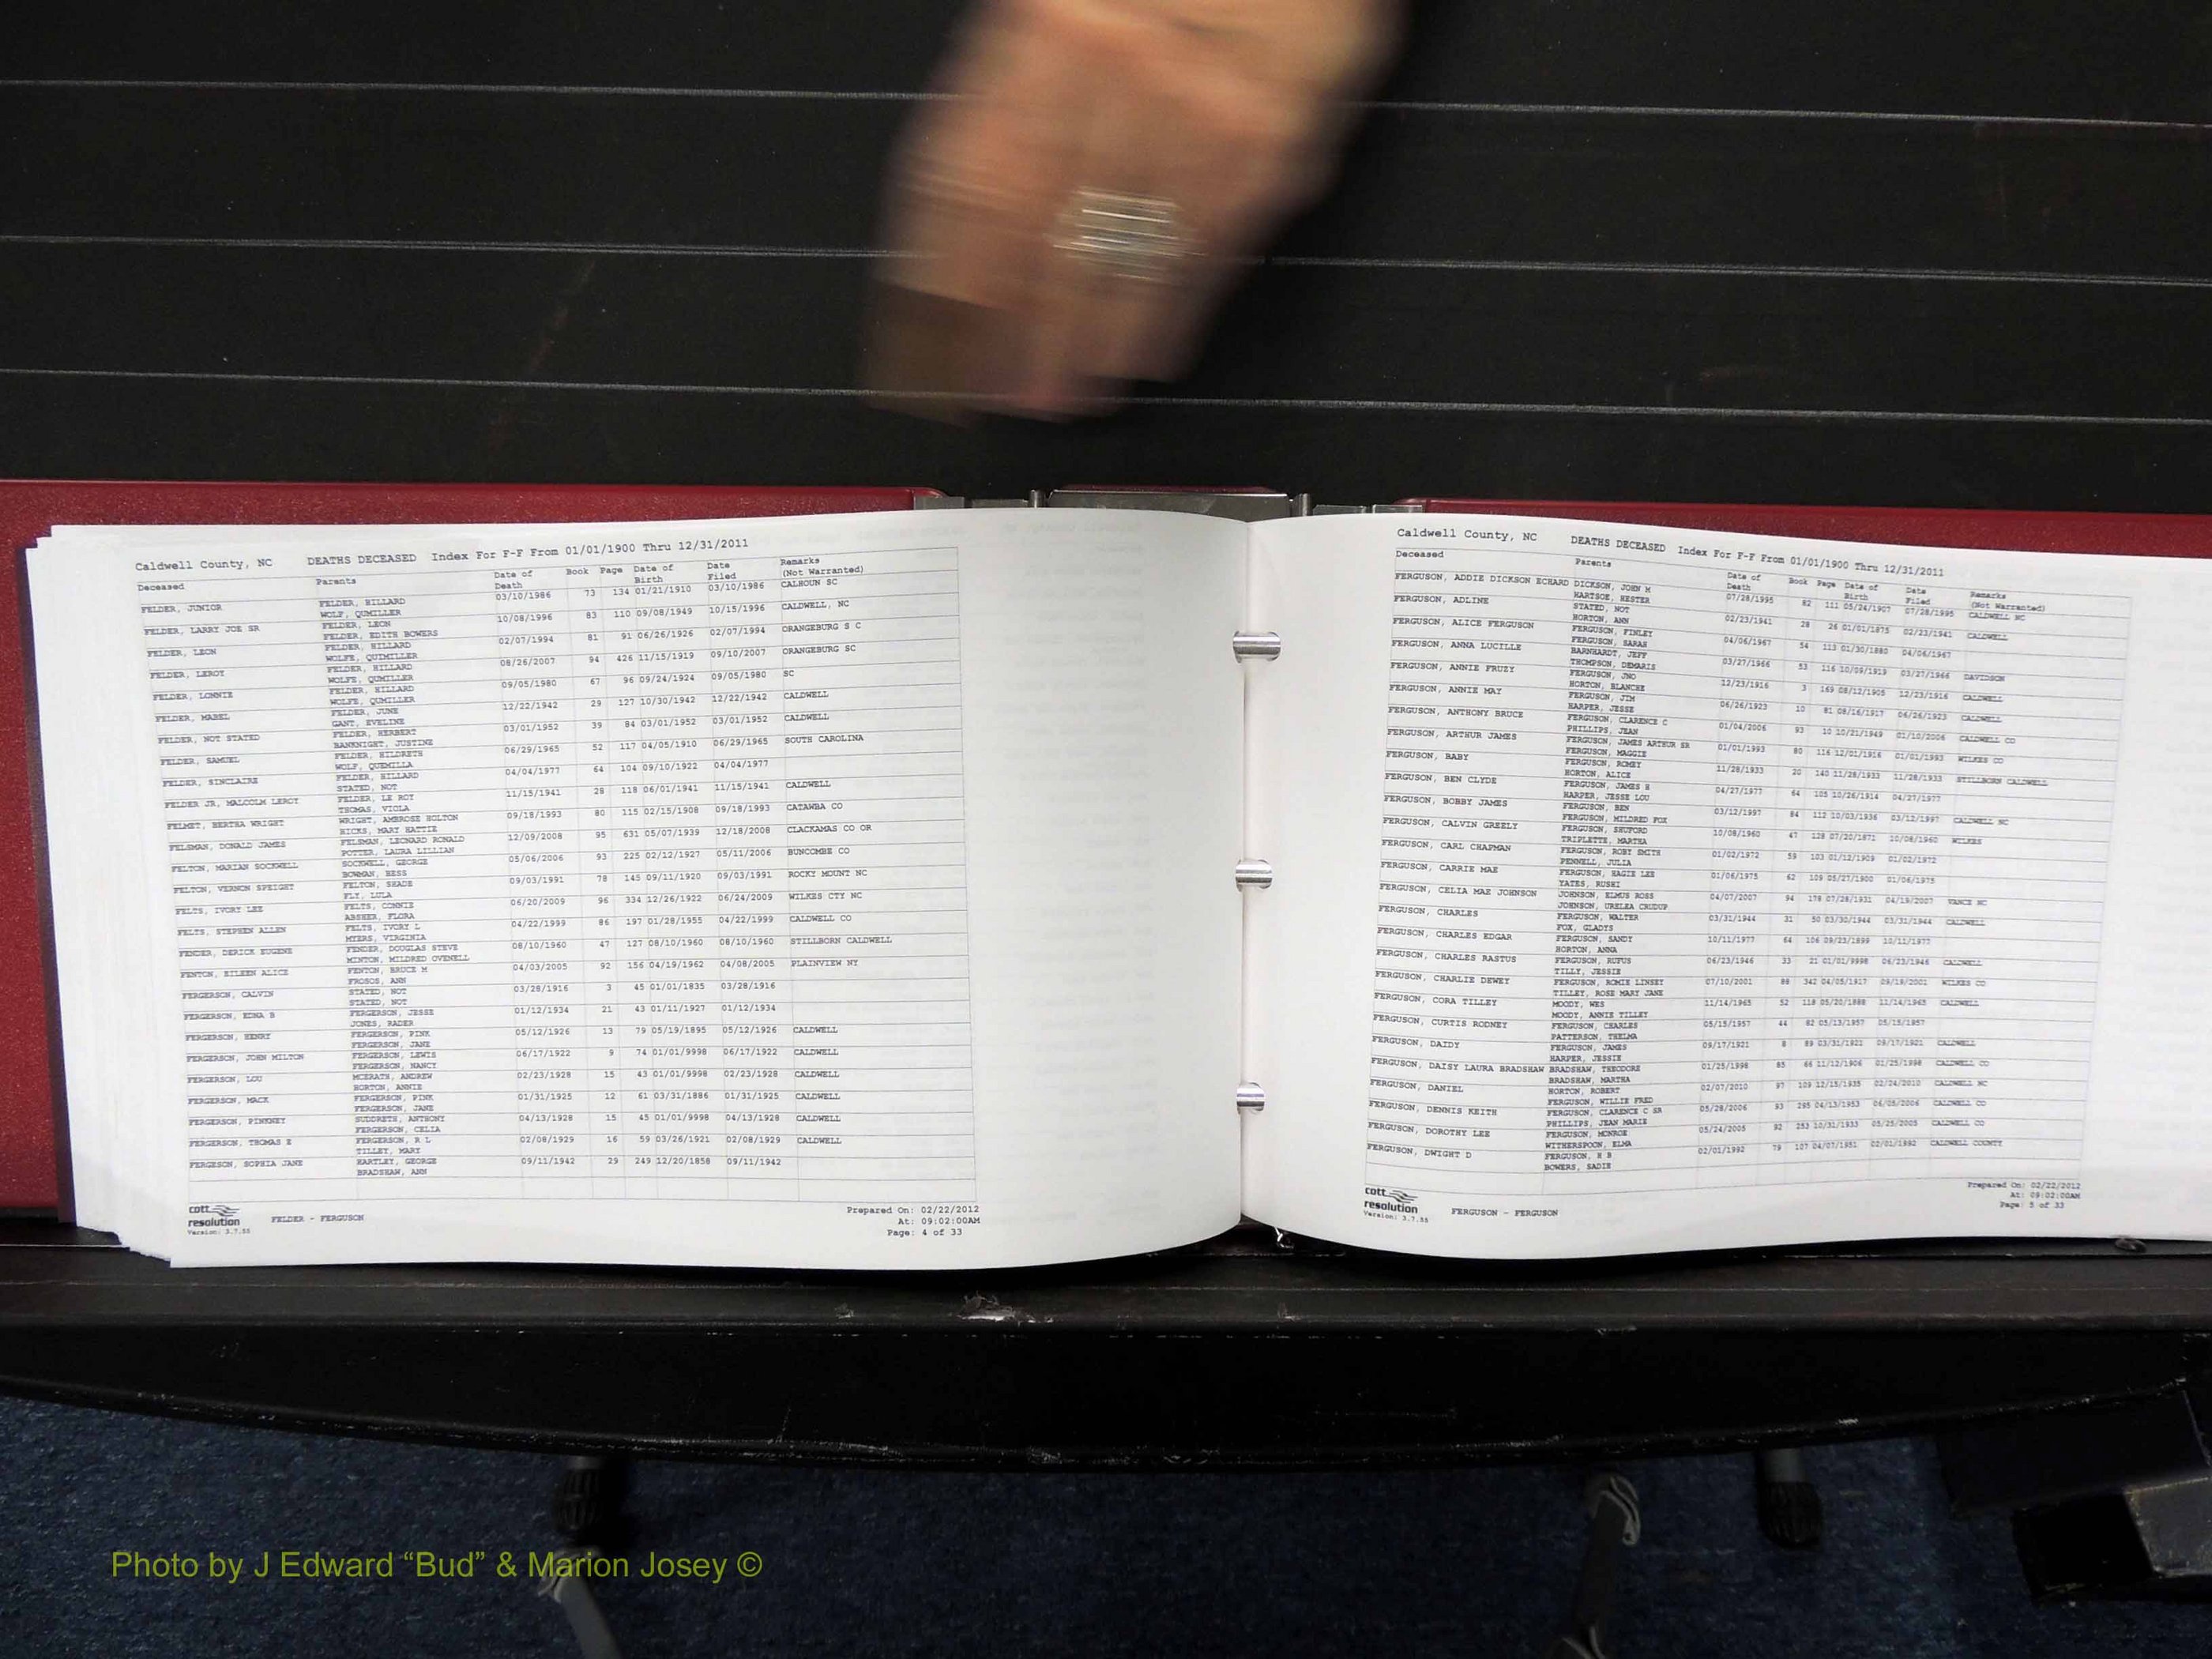 Caldwell County, NC DEATHS DECEASED Index For F-F From 01/01/1900 Thru 12/31/2011
Deceased Parents Date of Death Book Page Date of Birth Date Filed Remarks (Not Warranted)
FELDER, JUNIOR FELDER, HILLARD 03/10/1986 73 134 01/21/1910 03/10/1986 CALHOUN SC
WOLF, QUMILLER
FELDER, LARRY JOE SR FELDER, LEON 10/08/1996 83 110 09/08/1949 10/15/1996 CALDWELL, NC
FELDER, EDITH BOWERS
FELDER, LEON FELDER, HILLARD 02/07/1994 81 91 06/26/1926 02/07/1994 ORANGEBURG S C
WOLFE, QUIMILLER
FELDER, LEROY FELDER, HILLARD 08/26/2007 94 426 11/15/1919 09/10/2007 ORANGEBURG SC
WOLFE, QUMILLER
FELDER, LONNIE FELDER, HILLARD 09/05/1980 67 96 09/24/1924 09/05/1980 SC
WOLFE, QUMILLER
FELDER, MABEL FELDER, JUNE 12/22/1942 29 127 10/30/1942 12/22/1942 CALDWELL
GANT, EVELINE
FELDER, NOT STATED FELDER, HERBERT 03/01/1952 39 84 03/01/1952 03/01/1952 CALDWELL
BANKNIGHT, JUSTINE
FELDER, SAMUEL FELDER, HILDRETH 06/29/1965 52 117 04/05/1910 06/29/1965 SOUTH CAROLINA
WOLF, QUEMILLA
FELDER, SINCLAIRE FELDER, HILLARD 04/04/1977 64 104 09/10/1922 04/04/1977
STATED, NOT
FELDER JR, MALCOLM LEROY FELDER, LE ROY 11/15/1941 28 118 06/01/1941 11/15/1941 CALDWELL
THOMAS, VIOLA
FELMET, BERTHA WRIGHT WRIGHT, AMBROSE HOLTON 09/18/1993 80 115 02/15/1908 09/18/1993 CATAWBA CO
HICKS, MARY HATTIE
FELSMAN, DONALD JAMES FELSMAN, LEONARD RONALD 12/09/2008 95 631 05/07/1939 12/18/2008 CLACKAMAS CO OR
POTTER, LAURA LILLIAN
FELTON, MARIAN SOCKWELL SOCKWELL, GEORGE 05/06/2006 93 225 02/12/1927 05/11/2006 BUNCOMBE CO
BOWMAN, BESS
FELTON, VERNON SPEIGHT FELTON, SHADE 09/03/1991 78 145 09/11/1920 09/03/1991 ROCKY MOUNT NC
FLY, LULA
FELTS, IVORY LEE FELTS, CONNIE 06/20/2009 96 334 12/26/1922 06/24/2009 WILKES CTY NC
ABSHER, FLORA
FELTS, STEPHEN ALLEN FELTS, IVORY L 04/22/1999 86 197 01/28/1955 04/22/1999 CALDWELL CO
MYERS, VIRGINIA
FENDER, DERICK EUGENE FENDER, DOUGLAS STEVE 08/10/1960 47 127 08/10/1960 08/10/1960 STILLBORN CALDWELL
MINTON, MILDRED OVENELL
FENTON, EILEEN ALICE FENTON, BRUCE M 04/03/2005 92 156 04/19/1962 04/08/2005 PLAINVIEW NY
FROSOS, ANN
FERGERSON, CALVIN STATED, NOT 03/28/1916 3 45 01/01/1835 03/28/1916
STATED, NOT
FERGERSON, EDNA B FERGERSON, JESSE 01/12/1934 21 43 01/11/1927 01/12/1934
JONES, RADER
FERGERSON, HENRY FERGERSON, PINK 05/12/1926 13 79 05/19/1895 05/12/1926 CALDWELL
FERGERSON, JANE
FERGERSON, JOHN MILTON FERGERSON, LEWIS 06/17/1922 9 74 01/01/9998 06/17/1922 CALDWELL
FERGERSON, NANCY
FERGERSON, LOU MCGRATH, ANDREW 02/23/1928 15 43 01/01/9998 02/23/1928 CALDWELL
HORTON, ANNIE
FERGERSON, MACK FERGERSON, PINK 01/31/1925 12 61 03/31/1886 01/31/1925 CALDWELL
FERGERSON, JANE
FERGERSON, PINKNEY SUDDRETH, ANTHONY 04/13/1928 15 45 01/01/9998 04/13/1928 CALDWELL
FERGERSON, CELIA
FERGERSON, THOMAS E FERGERSON, R L 02/08/1929 16 59 03/26/1921 02/08/1929 CALDWELL
TILLEY, MARY
FERGESON, SOPHIA JANE HARTLEY, GEORGE 09/11/1942 29 249 12/20/1858 09/11/1942
BRADSHAW, ANN
cott resolution
Version: 3.7.55
FELDER - FERGUSON
Prepared On: 02/22/2012
At: 09:02:00AM
Page: 4 of 33
Caldwell County, NC DEATHS DECEASED Index For F-F From 01/01/1900 Thru 12/31/2011
Deceased Parents Date of Death Book Page Date of Birth Date Filed Remarks (Not Warranted)
FERGUSON, ADDIE DICKSON ECHARD DICKSON, JOHN M 07/28/1995 82 111 05/24/1907 07/28/1995 CALDWELL NC
HARTSOE, HESTER
FERGUSON, ADLINE STATED, NOT 02/23/1941 28 26 01/01/1875 02/23/1941 CALDWELL
HORTON, ANN
FERGUSON, ALICE FERGUSON FERGUSON, FINLEY 04/06/1967 54 113 01/30/1880 04/06/1967
FERGUSON, SARAH
FERGUSON, ANNA LUCILLE BARNHARDT, JEFF 03/27/1966 53 116 10/09/1919 03/27/1966 DAVIDSON
THOMPSON, DEMARIS
FERGUSON, ANNIE FRUZY FERGUSON, JNO 12/23/1916 3 169 08/12/1905 12/23/1916 CALDWELL
HORTON, BLANCHE
FERGUSON, ANNIE MAY FERGUSON, JIM 06/26/1923 10 81 08/16/1917 06/26/1923 CALDWELL
HARPER, JESSE
FERGUSON, ANTHONY BRUCE FERGUSON, CLARENCE C 01/04/2006 93 10 10/21/1949 01/10/2006 CALDWELL CO
PHILLIPS, JEAN
FERGUSON, ARTHUR JAMES FERGUSON, JAMES ARTHUR SR 01/01/1993 80 116 12/01/1916 01/01/1993 WILKES CO
FERGUSON, MAGGIE
FERGUSON, BABY FERGUSON, ROMEY 11/28/1933 20 140 11/28/1933 11/28/1933 STILLBORN CALDWELL
HORTON, ALICE
FERGUSON, BEN CLYDE FERGUSON, JAMES H 04/27/1977 64 105 10/26/1914 04/27/1977
HARPER, JESSE LOU
FERGUSON, BOBBY JAMES FERGUSON, BEN 03/12/1997 84 112 10/03/1936 03/12/1997 CALDWELL NC
FERGUSON, MILDRED FOX
FERGUSON, CALVIN GREELY FERGUSON, SHUFORD 10/08/1960 47 128 07/20/1871 10/08/1960 WILKES
TRIPLETTE, MARTHA
FERGUSON, CARL CHAPMAN FERGUSON, ROBY SMITH 01/02/1972 59 103 01/12/1909 01/02/1972
PENNELL, JULIA
FERGUSON, CARRIE MAE FERGUSON, HAGIE LEE 01/06/1975 62 109 05/27/1900 01/06/1975
YATES, RUSHI
FERGUSON, CELIA MAE JOHNSON JOHNSON, ELMUS ROSS 04/07/2007 94 178 07/28/1931 04/19/2007 VANCE NC
JOHNSON, URELEA CRUDUP
FERGUSON, CHARLES FERGUSON, WALTER 03/31/1944 31 50 03/30/1944 03/31/1944 CALDWELL
FOX, GLADYS
FERGUSON, CHARLES EDGAR FERGUSON, SANDY 10/11/1977 64 106 09/23/1899 10/11/1977
HORTON, ANNA
FERGUSON, CHARLES RASTUS FERGUSON, RUFUS 06/23/1946 33 21 01/01/9998 06/23/1946 CALDWELL
TILLY, JESSIE
FERGUSON, CHARLIE DEWEY FERGUSON, ROMIE LINSEY 07/10/2001 88 342 04/05/1917 09/19/2001 WILKES CO
TILLEY, ROSE MARY JANE
FERGUSON, CORA TILLEY MOODY, WES 11/14/1965 52 118 05/20/1888 11/14/1965 CALDWELL
MOODY, ANNIE TILLEY
FERGUSON, CURTIS RODNEY FERGUSON, CHARLES 05/15/1957 44 82 05/13/1957 05/15/1957
PATTERSON, THELMA
FERGUSON, DAIDY FERGUSON, JAMES 09/17/1921 8 89 03/31/1921 09/17/1921 CALDWELL
HARPER, JESSIE
FERGUSON, DAISY LAURA BRADSHAW BRADSHAW, THEODORE 01/25/1998 85 66 11/12/1906 01/25/1998 CALDWELL CO
BRADSHAW, MARTHA
FERGUSON, DANIEL HORTON, ROBERT 02/07/2010 97 109 12/15/1935 02/24/2010 CALDWELL NC
FERGUSON, WILLIE FRED
FERGUSON, DENNIS KEITH FERGUSON, CLARENCE C SR 05/28/2006 93 295 04/13/1953 06/05/2006 CALDWELL CO
PHILLIPS, JEAN MARIE
FERGUSON, DOROTHY LEE FERGUSON, MONROE 05/24/2005 92 253 10/31/1933 05/25/2005 CALDWELL CO
WITHERSPOON, ELMA
FERGUSON, DWIGHT D FERGUSON, H B 02/01/1992 79 107 04/07/1951 02/01/1992 CALDWELL COUNTY
BOWERS, SADIE
cott resolution
Version: 3.7.55
FERGUSON - FERGUSON
Prepared On: 02/22/2012
At: 09:02:00AM
Page: 5 of 33
Photo by J Edward “Bud” & Marion Josey ©